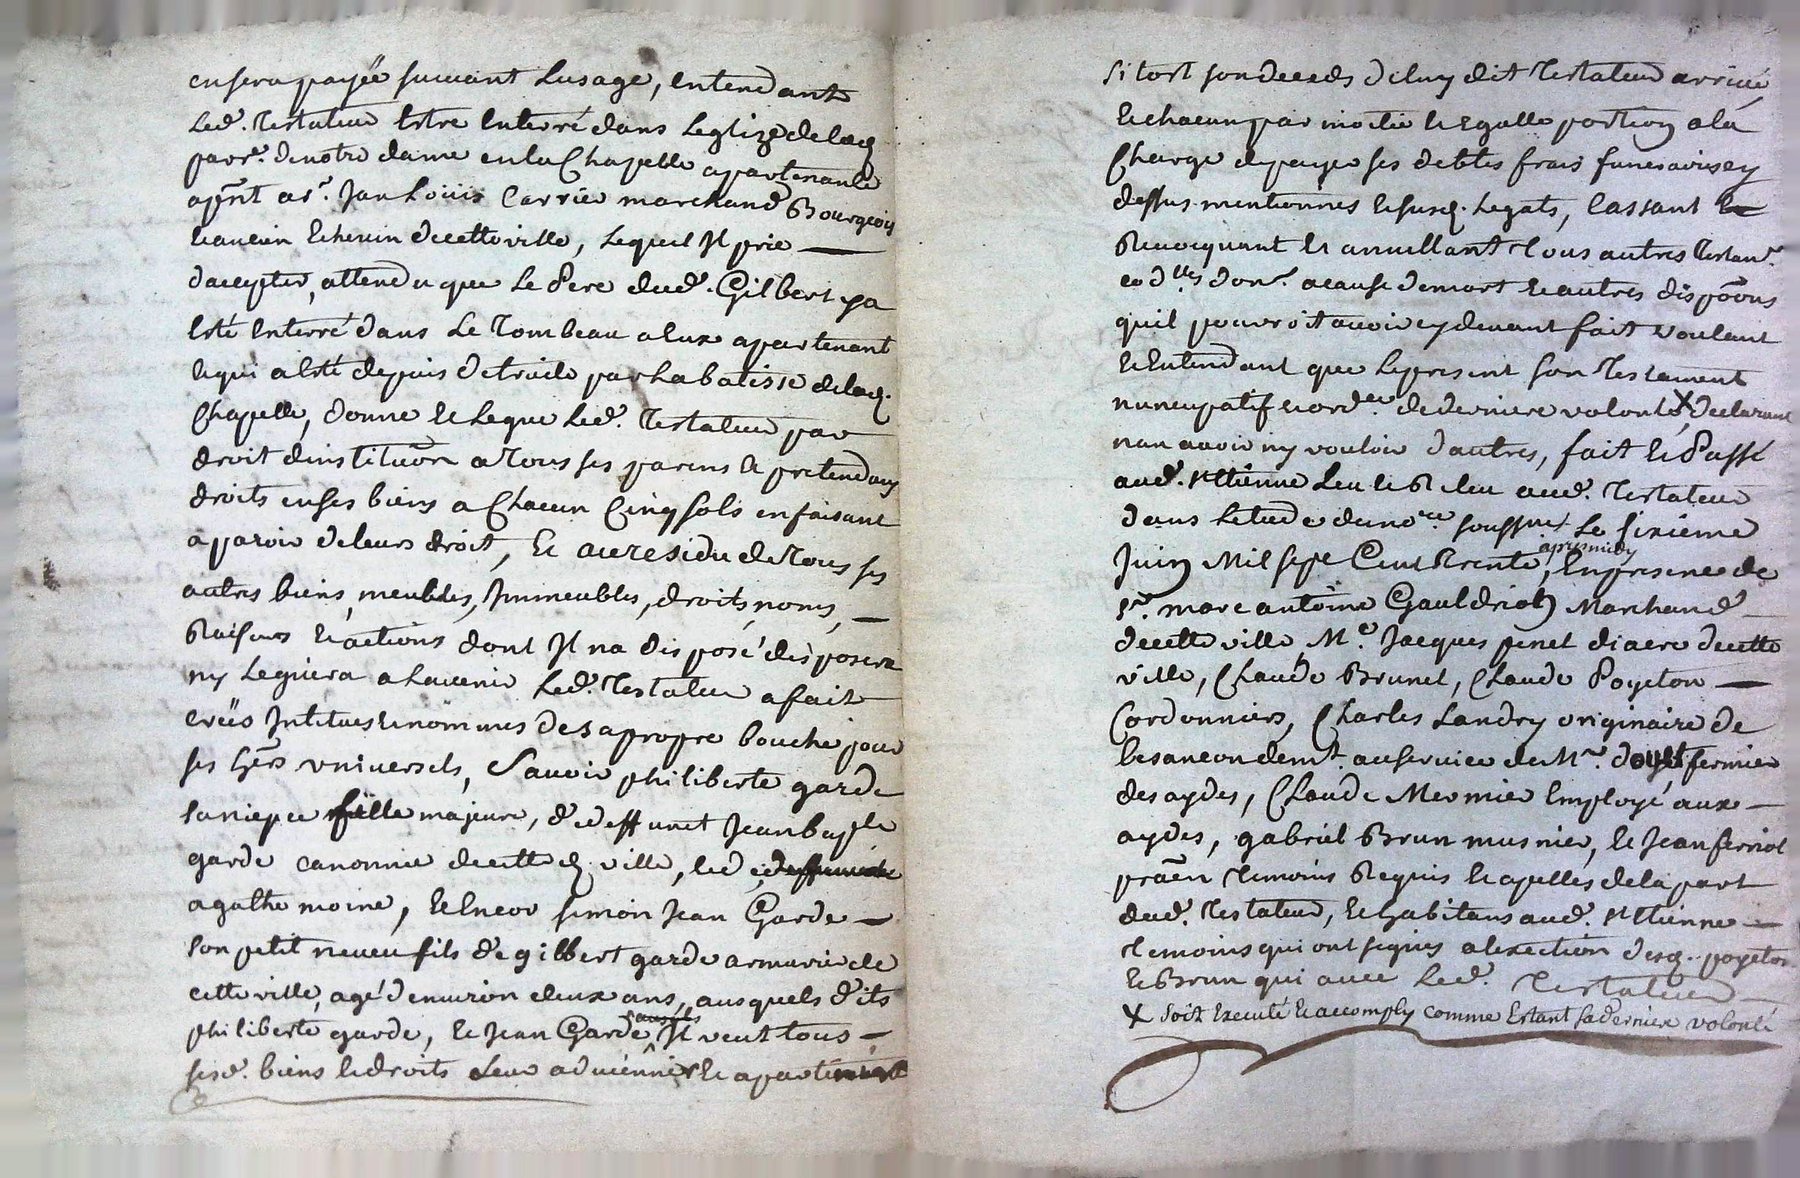 ensera payée suivant Lusage, entendant
Led. Testateur Estre Enterré dans Leglize delad
parr.e denotre dame enla Chapelle apartenante
apñt a sr. Jan Loüis Carrié marchand Bourgeois
Eancien Echevin decette ville, Lequel Jl prie
daccepter, attendu que Le Pere dud. Gilbert ya
Esté Enterré dans Le Tombeau a Eux apartenant
Equi a Esté depuis detruite par La batisse delad.
Chapelle, donne Et Legue Led. Testateur par
droit dinstituõn a Tous ses parens Et pretendans
droits enses biens a Chacun Cinq sols en faisant
aparoir deleurs droit, Et au residu de Tous ses
autres biens, meubles, Jmmeubles, droits, noms,
Raisons Eactions dont Jl na disposé disposera
ny Leguera a Lavenir Led. Testateur a fait
créés Jntitues Enommes desa propre bouche pour
ses hers vniversels, Savoir philiberte garde
saniepce fille majeure, de deffunct Jeanbapte
garde canonnié decette d. ville, Led
agathe moine, Et Encor simon Jean Garde
son petit neveu fils de gilbert garde armurié de
cette ville, agé denviron deux ans, ausquels dits
philiberte garde, Et Jean Garde ausqls Jl veut tous
sesd. biens Et droits Leur advienner Et apartenir
Sitost son deceds deluy dit Testateur arrivé
Echacun par moitié Et Egalle portion ala
Charge de payer ses debtes frais funeraires cy
dessus mentionnés Et susd. Legats, Cassant Et
Revocquant Et annullant Tous autres Testam.
codlles don. acause demort Eautres dispõons
quil pouvroit avoir cydevant fait voulant
Eentendant que Lepresent son Testament
nuncupatif Eord.ce dederniere volonté X, declarant
nan avoir ny vouloir dautres, fait Et Passé
aud. St Etienne Leu Et Releu aud. Testateur
dans Letude dunore soussné Le sixieme
Juin Mil sept Cent Trente, apresmidy En presence de
sr. marc antoine Gauldriot Marchand
decette ville, Me. Jacques penet diacre decette
ville, Claude Brunet, Claude Poyeton
Cordonniers, Charles Landry originaire de
besancon demt. auservice de Mr. fermier
des aydes, Claude Mermier Employé aux
aydes, gabriel Brun musnier, Et Jean ferriot
Temoins Requis Et apelles dela part
dud. Testateur, Et habitans aud. St Etienne
Temoins qui ont signés a lexection desd. poyeton
Et Brun qui avec Led. Testateur
X soit Executé Eaccomply comme Estant sa derniere volonté